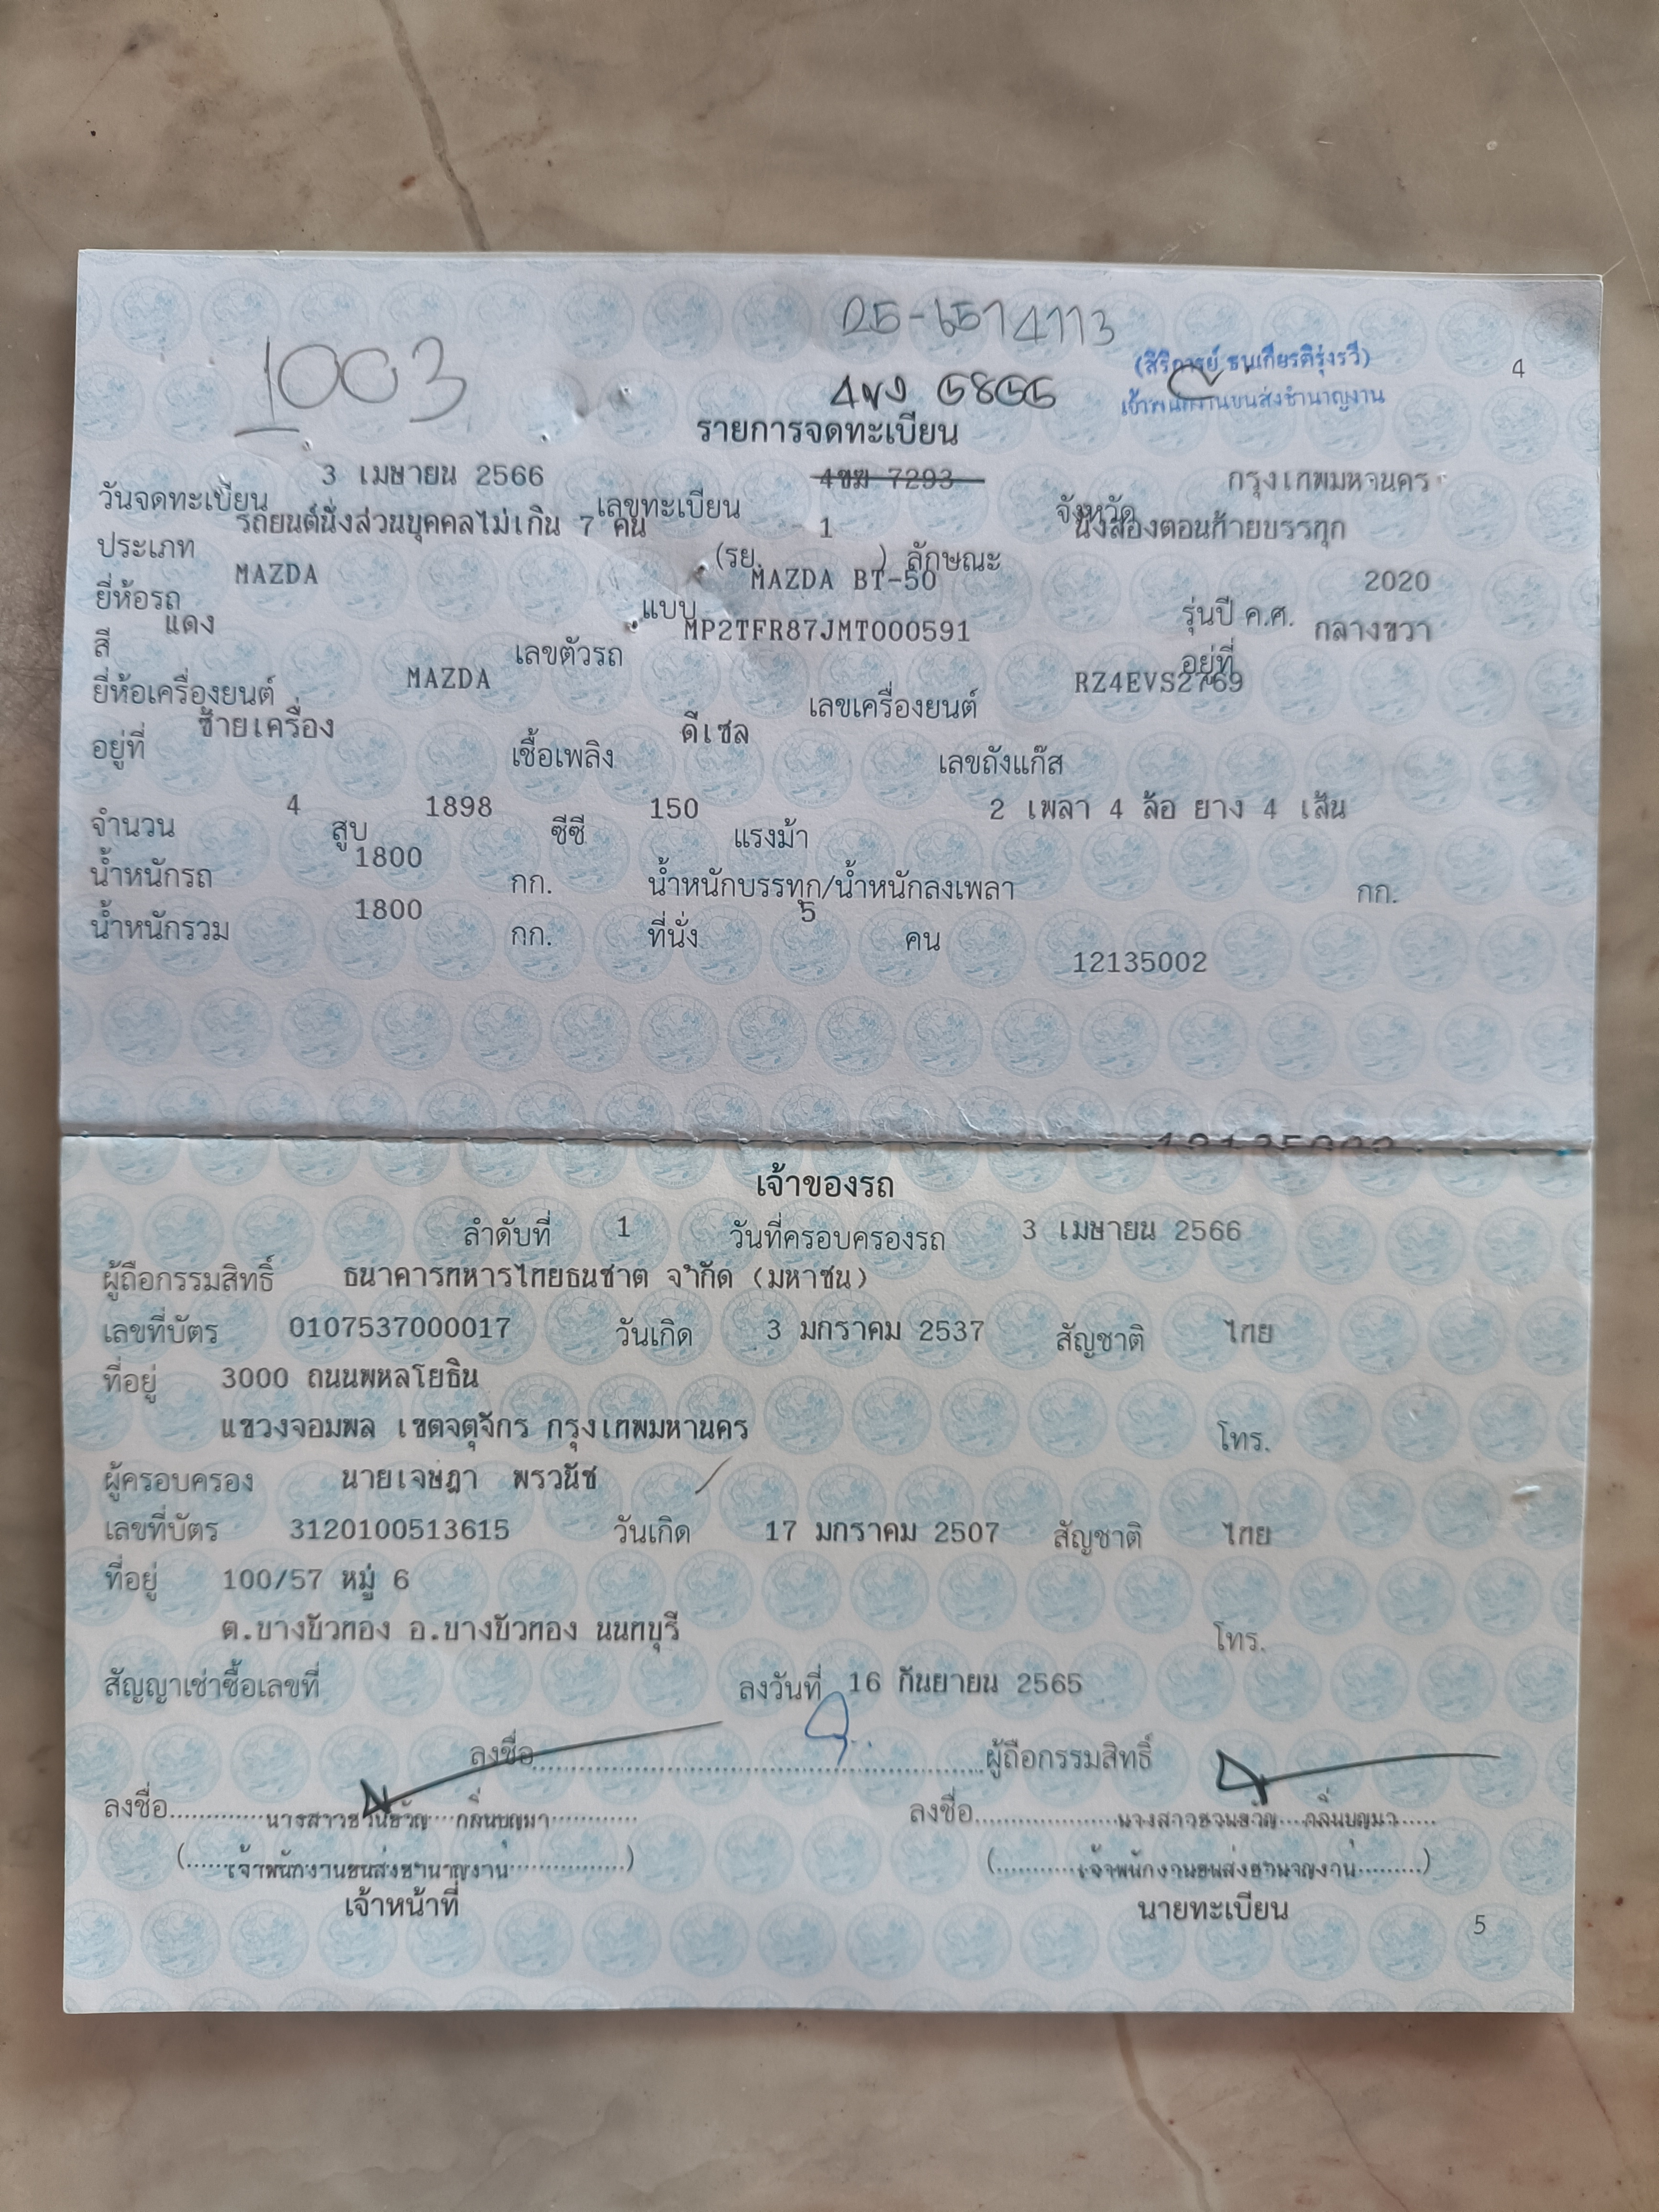 1003
25-6574113
(สิริการย์ ธนเกียรติรุ่งรวี)
เจ้าพนักงานขนส่งชำนาญงาน
4
รายการจดทะเบียน
วันจดทะเบียน 3 เมษายน 2566 เลขทะเบียน 4ขฆ 7293 จังหวัด กรุงเทพมหานคร
ประเภท รถยนต์นั่งส่วนบุคคลไม่เกิน 7 คน (รย. 1 ) ลักษณะ นั่งสองตอนท้ายบรรทุก
ยี่ห้อรถ MAZDA แบบ MAZDA BT-50 รุ่นปี ค.ศ. 2020
สี แดง เลขตัวรถ MP2TFR87JMT000591 อยู่ที่ กลางขวา
ยี่ห้อเครื่องยนต์ MAZDA เลขเครื่องยนต์ RZ4EVS2769
อยู่ที่ ซ้ายเครื่อง เชื้อเพลิง ดีเซล เลขถังแก๊ส
จำนวน 4 สูบ 1898 ซีซี 150 แรงม้า 2 เพลา 4 ล้อ ยาง 4 เส้น
น้ำหนักรถ 1800 กก. น้ำหนักบรรทุก/น้ำหนักลงเพลา กก.
น้ำหนักรวม 1800 กก. ที่นั่ง 5 คน
12135002
เจ้าของรถ
ลำดับที่ 1 วันที่ครอบครองรถ 3 เมษายน 2566
ผู้ถือกรรมสิทธิ์ ธนาคารทหารไทยธนชาต จำกัด (มหาชน)
เลขที่บัตร 0107537000017 วันเกิด 3 มกราคม 2537 สัญชาติ ไทย
ที่อยู่ 3000 ถนนพหลโยธิน
แขวงจอมพล เขตจตุจักร กรุงเทพมหานคร โทร.
ผู้ครอบครอง นายเจษฎา พรวนัช
เลขที่บัตร 3120100513615 วันเกิด 17 มกราคม 2507 สัญชาติ ไทย
ที่อยู่ 100/57 หมู่ 6
ต.บางบัวทอง อ.บางบัวทอง นนทบุรี โทร.
สัญญาเช่าซื้อเลขที่ ลงวันที่ 16 กันยายน 2565
ลงชื่อ ผู้ถือกรรมสิทธิ์
ลงชื่อ นางสาวชวนขวัญ กลิ่นบุญมา ลงชื่อ นางสาวชวนขวัญ กลิ่นบุญมา
(เจ้าพนักงานขนส่งชำนาญงาน) (เจ้าพนักงานขนส่งชำนาญงาน)
เจ้าหน้าที่ นายทะเบียน
5